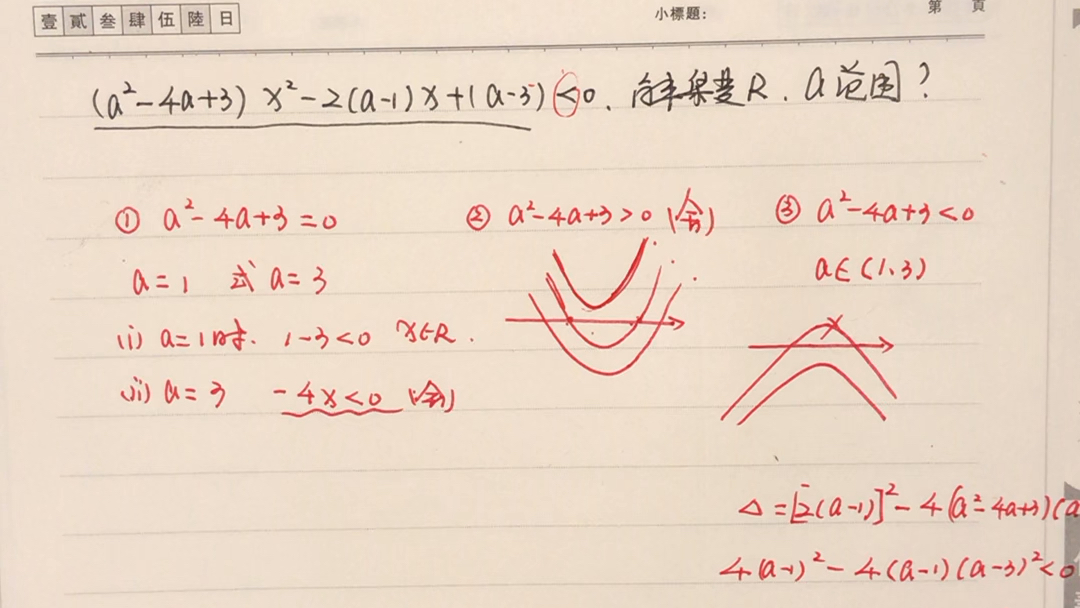 壹 貳 叁 肆 伍 陸 日
小標題：
第 頁
(a²-4a+3) x²-2(a-1)x+(a-3)<0, 解集是R. a范围?
① a²-4a+3=0
a=1 或 a=3
(i) a=1时. 1-3<0 x∈R.
(ii) a=3 -4x<0 (舍)
② a²-4a+3>0 (舍)
③ a²-4a+3<0
a∈(1,3)
Δ=[2(a-1)]²-4(a²-4a+3)(a
4(a-1)²-4(a-1)(a-3)²<0